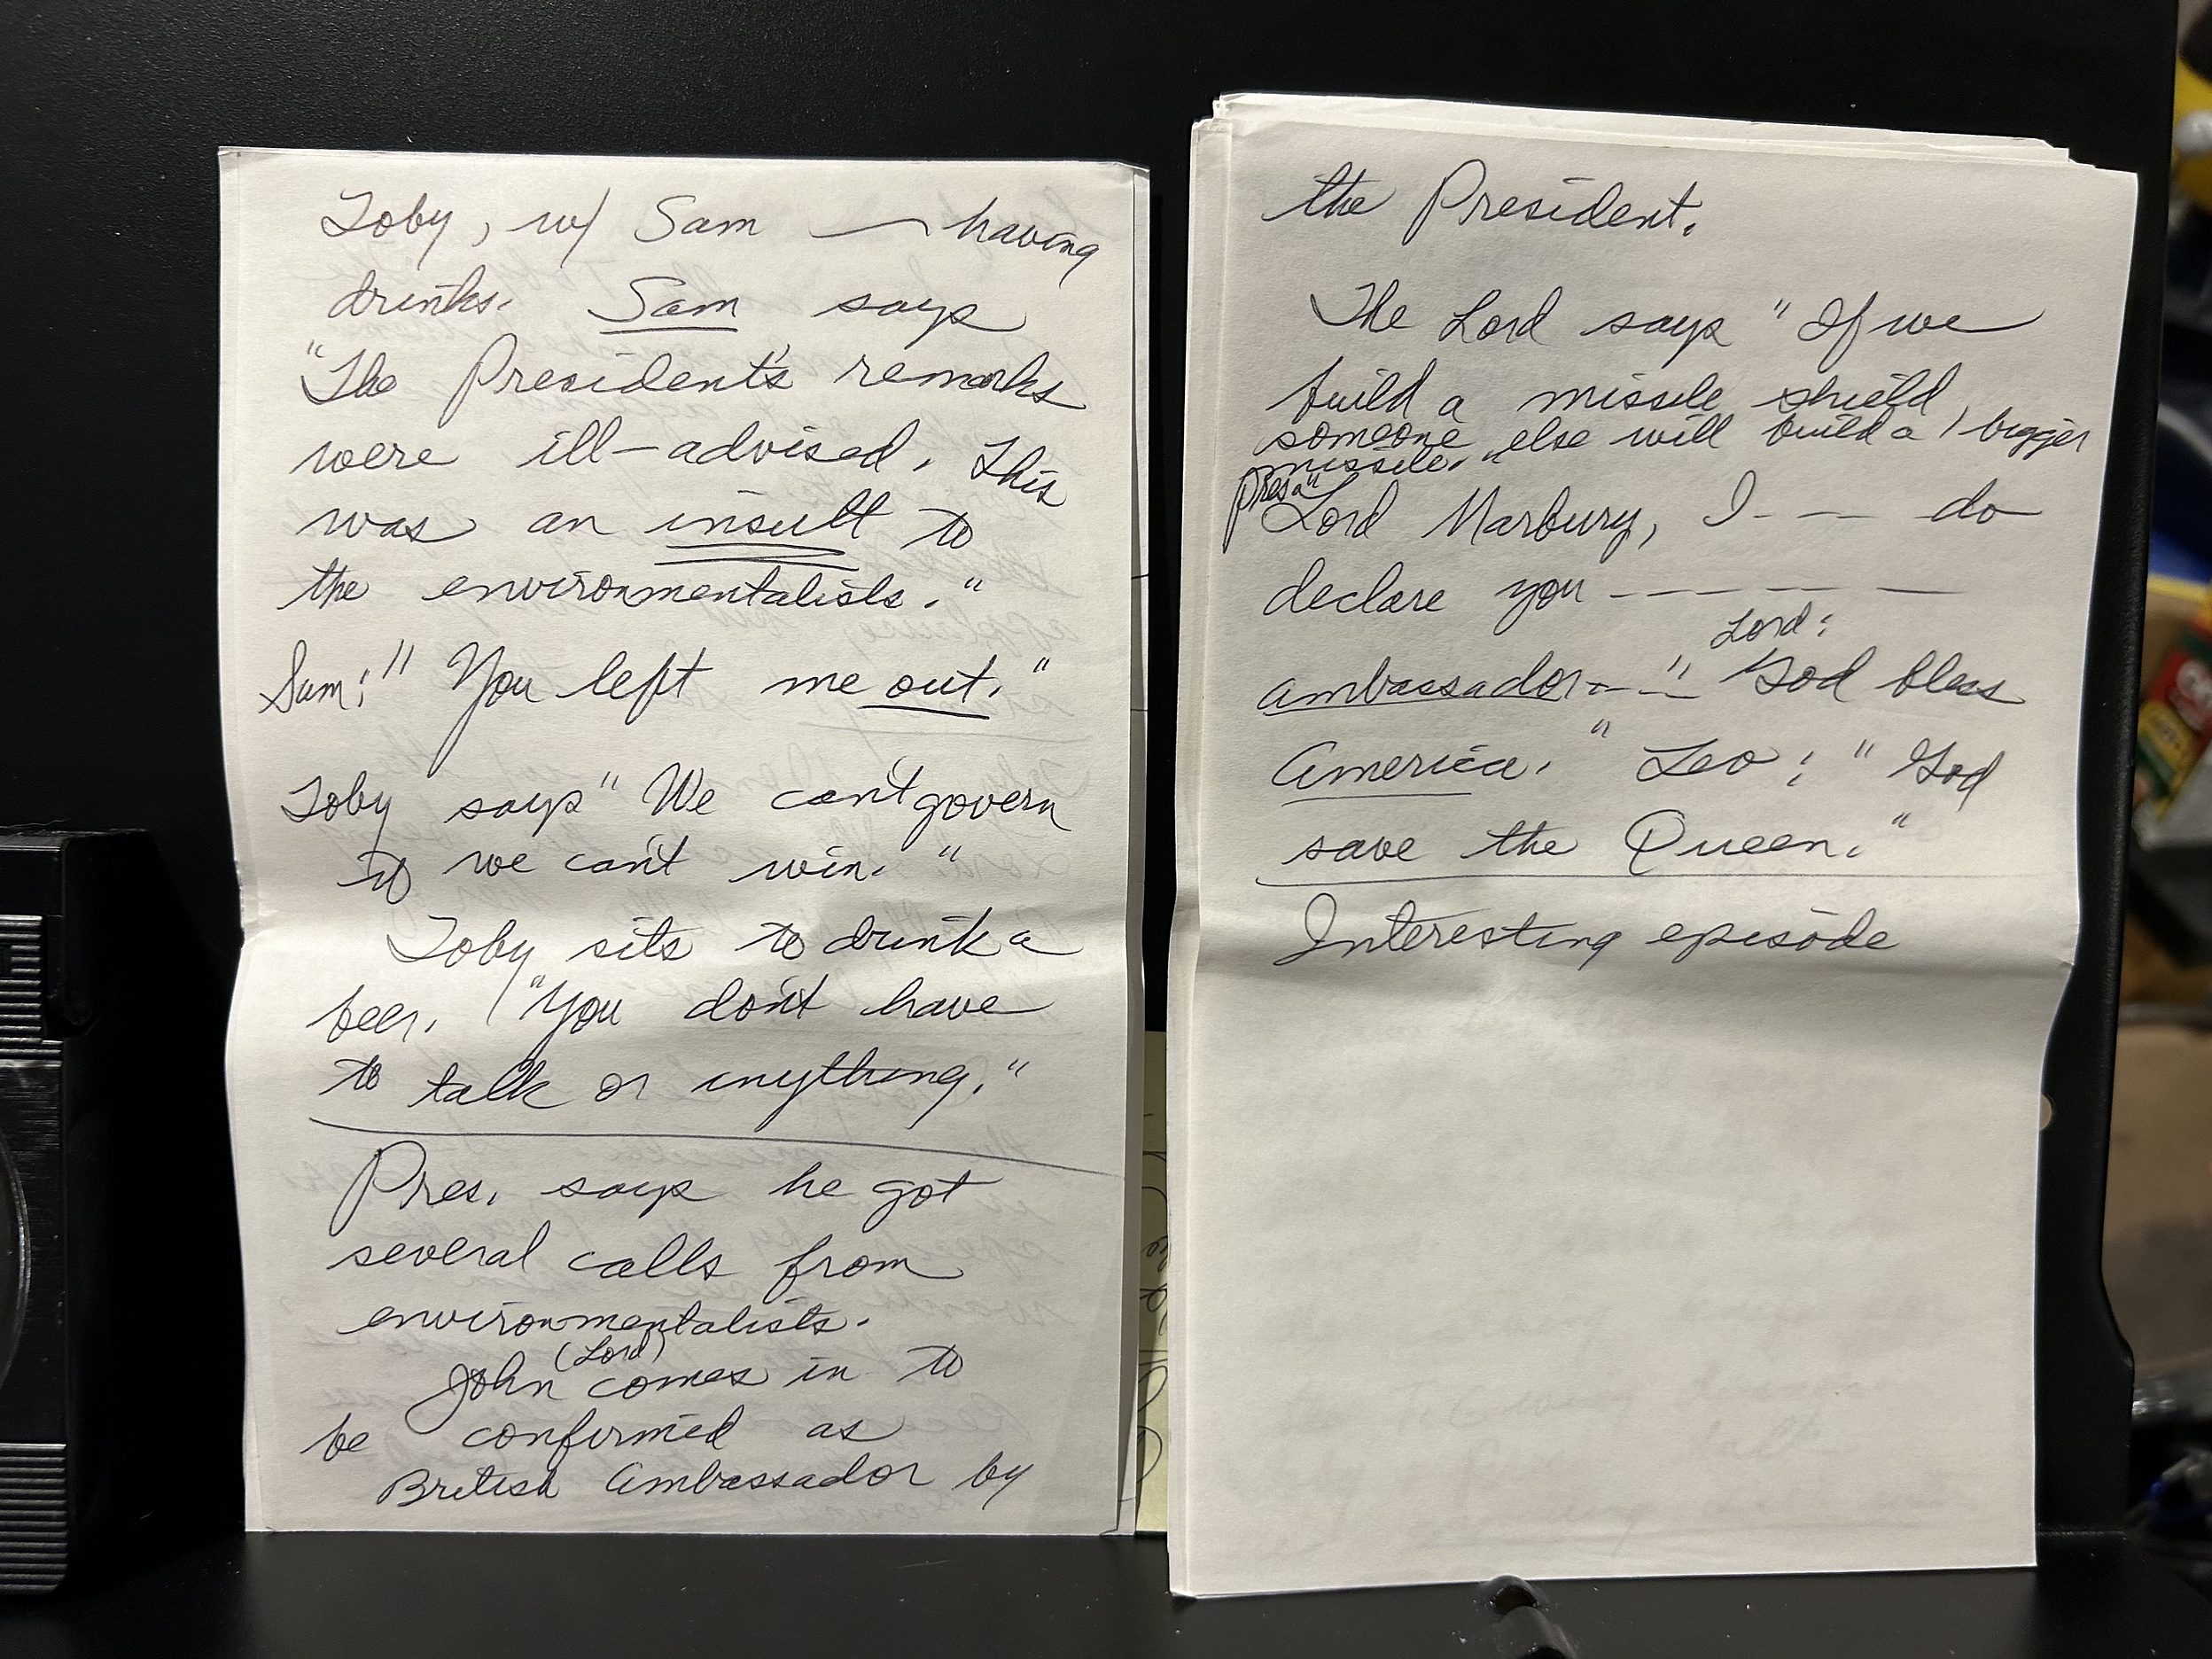 Toby, w/ Sam — having
drinks. Sam says
"The President's remarks
were ill-advised. This
was an insult to
the environmentalists."
Sam: "You left me out."
Toby says "We can't govern
if we can't win."
Toby sits to drink a
beer. "You don't have
to talk or anything."
Pres. says he got
several calls from
environmentalists.
(Lord)
John comes in to
be confirmed as
British Ambassador by
the President.
The Lord says "If we
build a missile shield,
someone else will build a bigger
missile."
Pres: "Lord Marbury, I - - - do
declare you - - - - - -
Lord:
ambassador - - -" "God bless
America." Leo: "God
save the Queen."
Interesting episode